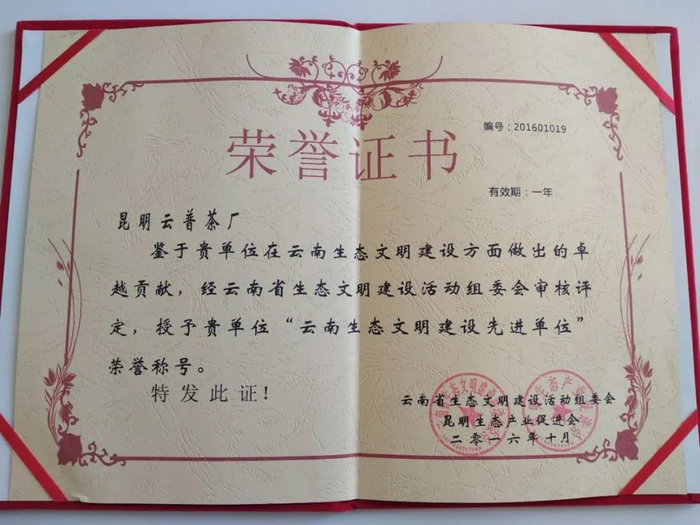 编号：201601019
荣誉证书
有效期：一年
昆明云普茶厂
鉴于贵单位在云南生态文明建设方面做出的卓
越贡献，经云南省生态文明建设活动组委会审核评
定，授予贵单位“云南生态文明建设先进单位”
荣誉称号。
特发此证！
云南省生态文明建设活动组委会
昆明生态产业促进会
二零一六年十月